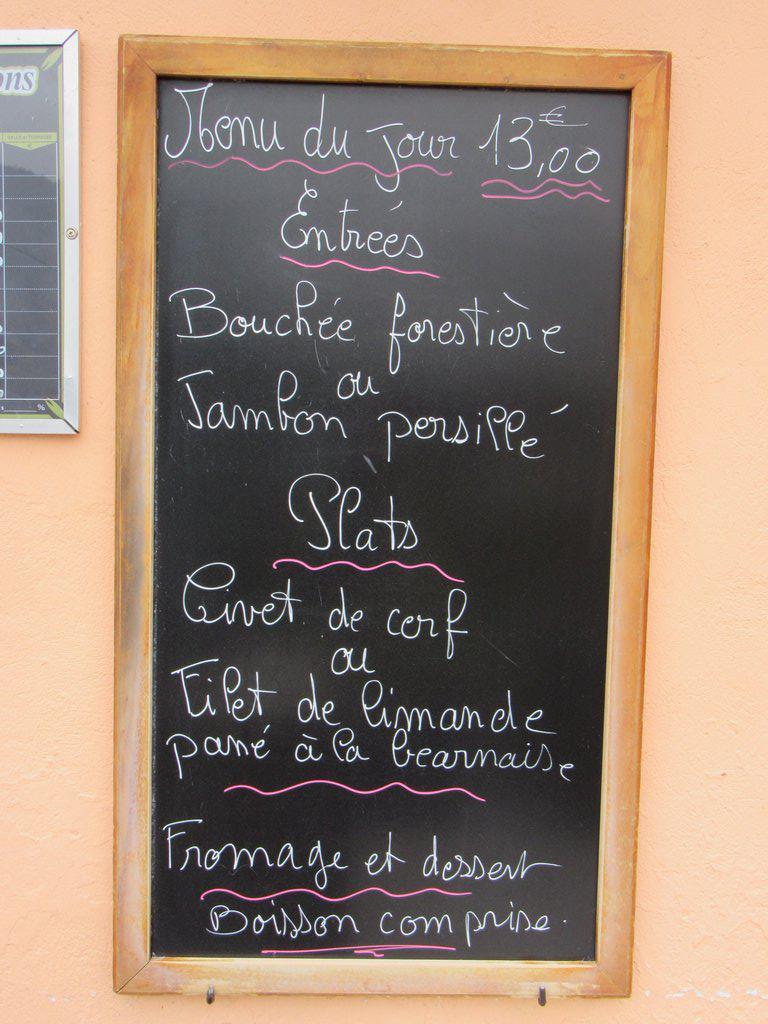 ons
Menu du jour 13,00 €
Entrées
Bouchée forestière
ou
Jambon persillé
Plats
Civet de cerf
ou
Filet de limande
pané à la bearnaise
Fromage et dessert
Boisson comprise.
%